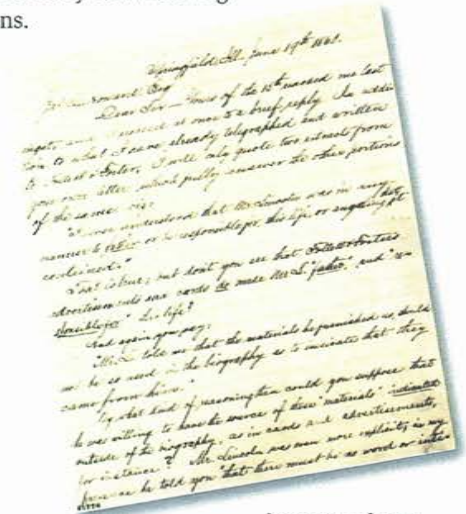 ns.
Springfield, Ill. June 19th 1860.
Esq
Dear Sir— Yours of the 15th reached me last
night, and I proceed at once to a brief reply. In addi
tion to what I have already telegraphed and written
to Follett & Foster, I will only quote two extracts from
your own letter which fully answer the other portions
of the same viz:
"I never understood that Mr Lincoln was in any
manner to or be responsible for, this life or anything it
contained."
That is true; but don't you see that Follett & Fosters
advertisements and cards do make Mr L. and "re-
sponsible for" his life?
And again you say:
"Mr L. told me that the materials he furnished us, should
not be so used in the biography as to indicate that they
came from him."
By what kind of reasoning then could you suppose that
he was willing to have the source of these "materials" indicated
outside of the biography, as in cards and advertisements,
for instance? Mr Lincoln was even more explicit in my
presence he told you "that there must be no word or